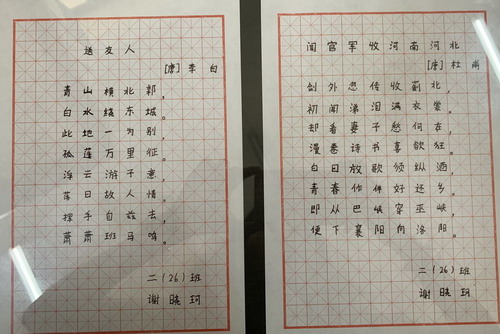 送友人
[唐] 李白
青山横北郭，
白水绕东城。
此地一为别，
孤蓬万里征。
浮云游子意，
落日故人情。
挥手自兹去，
萧萧班马鸣。
二(26)班
谢晓珂
闻官军收河南河北
[唐] 杜甫
剑外忽传收蓟北，
初闻涕泪满衣裳。
却看妻子愁何在，
漫卷诗书喜欲狂。
白日放歌须纵酒，
青春作伴好还乡。
即从巴峡穿巫峡，
便下襄阳向洛阳。
二(26)班
谢晓珂